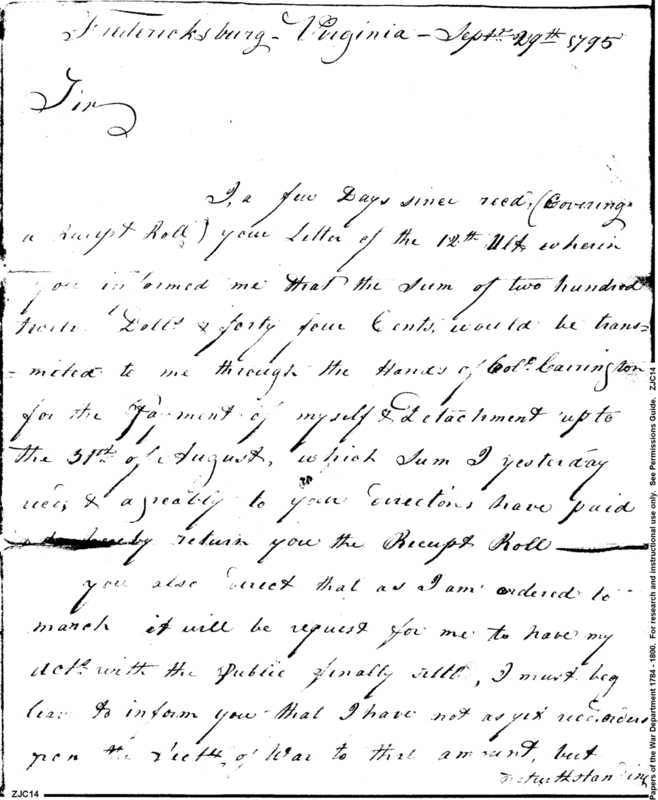 Fredericksburg - Virginia - Sept.r 29th 1795
Sir
I, a few Days since recd, (Covering
a Receipt Roll) your Letter of the 12th Ult. wherein
you informed me that the sum of two hundred
Dolls. & forty four Cents, would be trans=
=mited to me through the Hands of Colo. Carrington
for the Payment of myself & Detachment up to
the 31st. of August, which sum I yesterday
& agreably to your directions have paid
hereby return you the Receipt Roll
you also direct that as I am ordered to
march it will be request for me to have my
Acts. with the Public finally settd, I must beg
leave to inform you that I have not as yet
of War to that amount, but
notwithstanding
ZJC14
Papers of the War Department 1784 - 1800. For research and instructional use only. See Permissions Guide. ZJC14